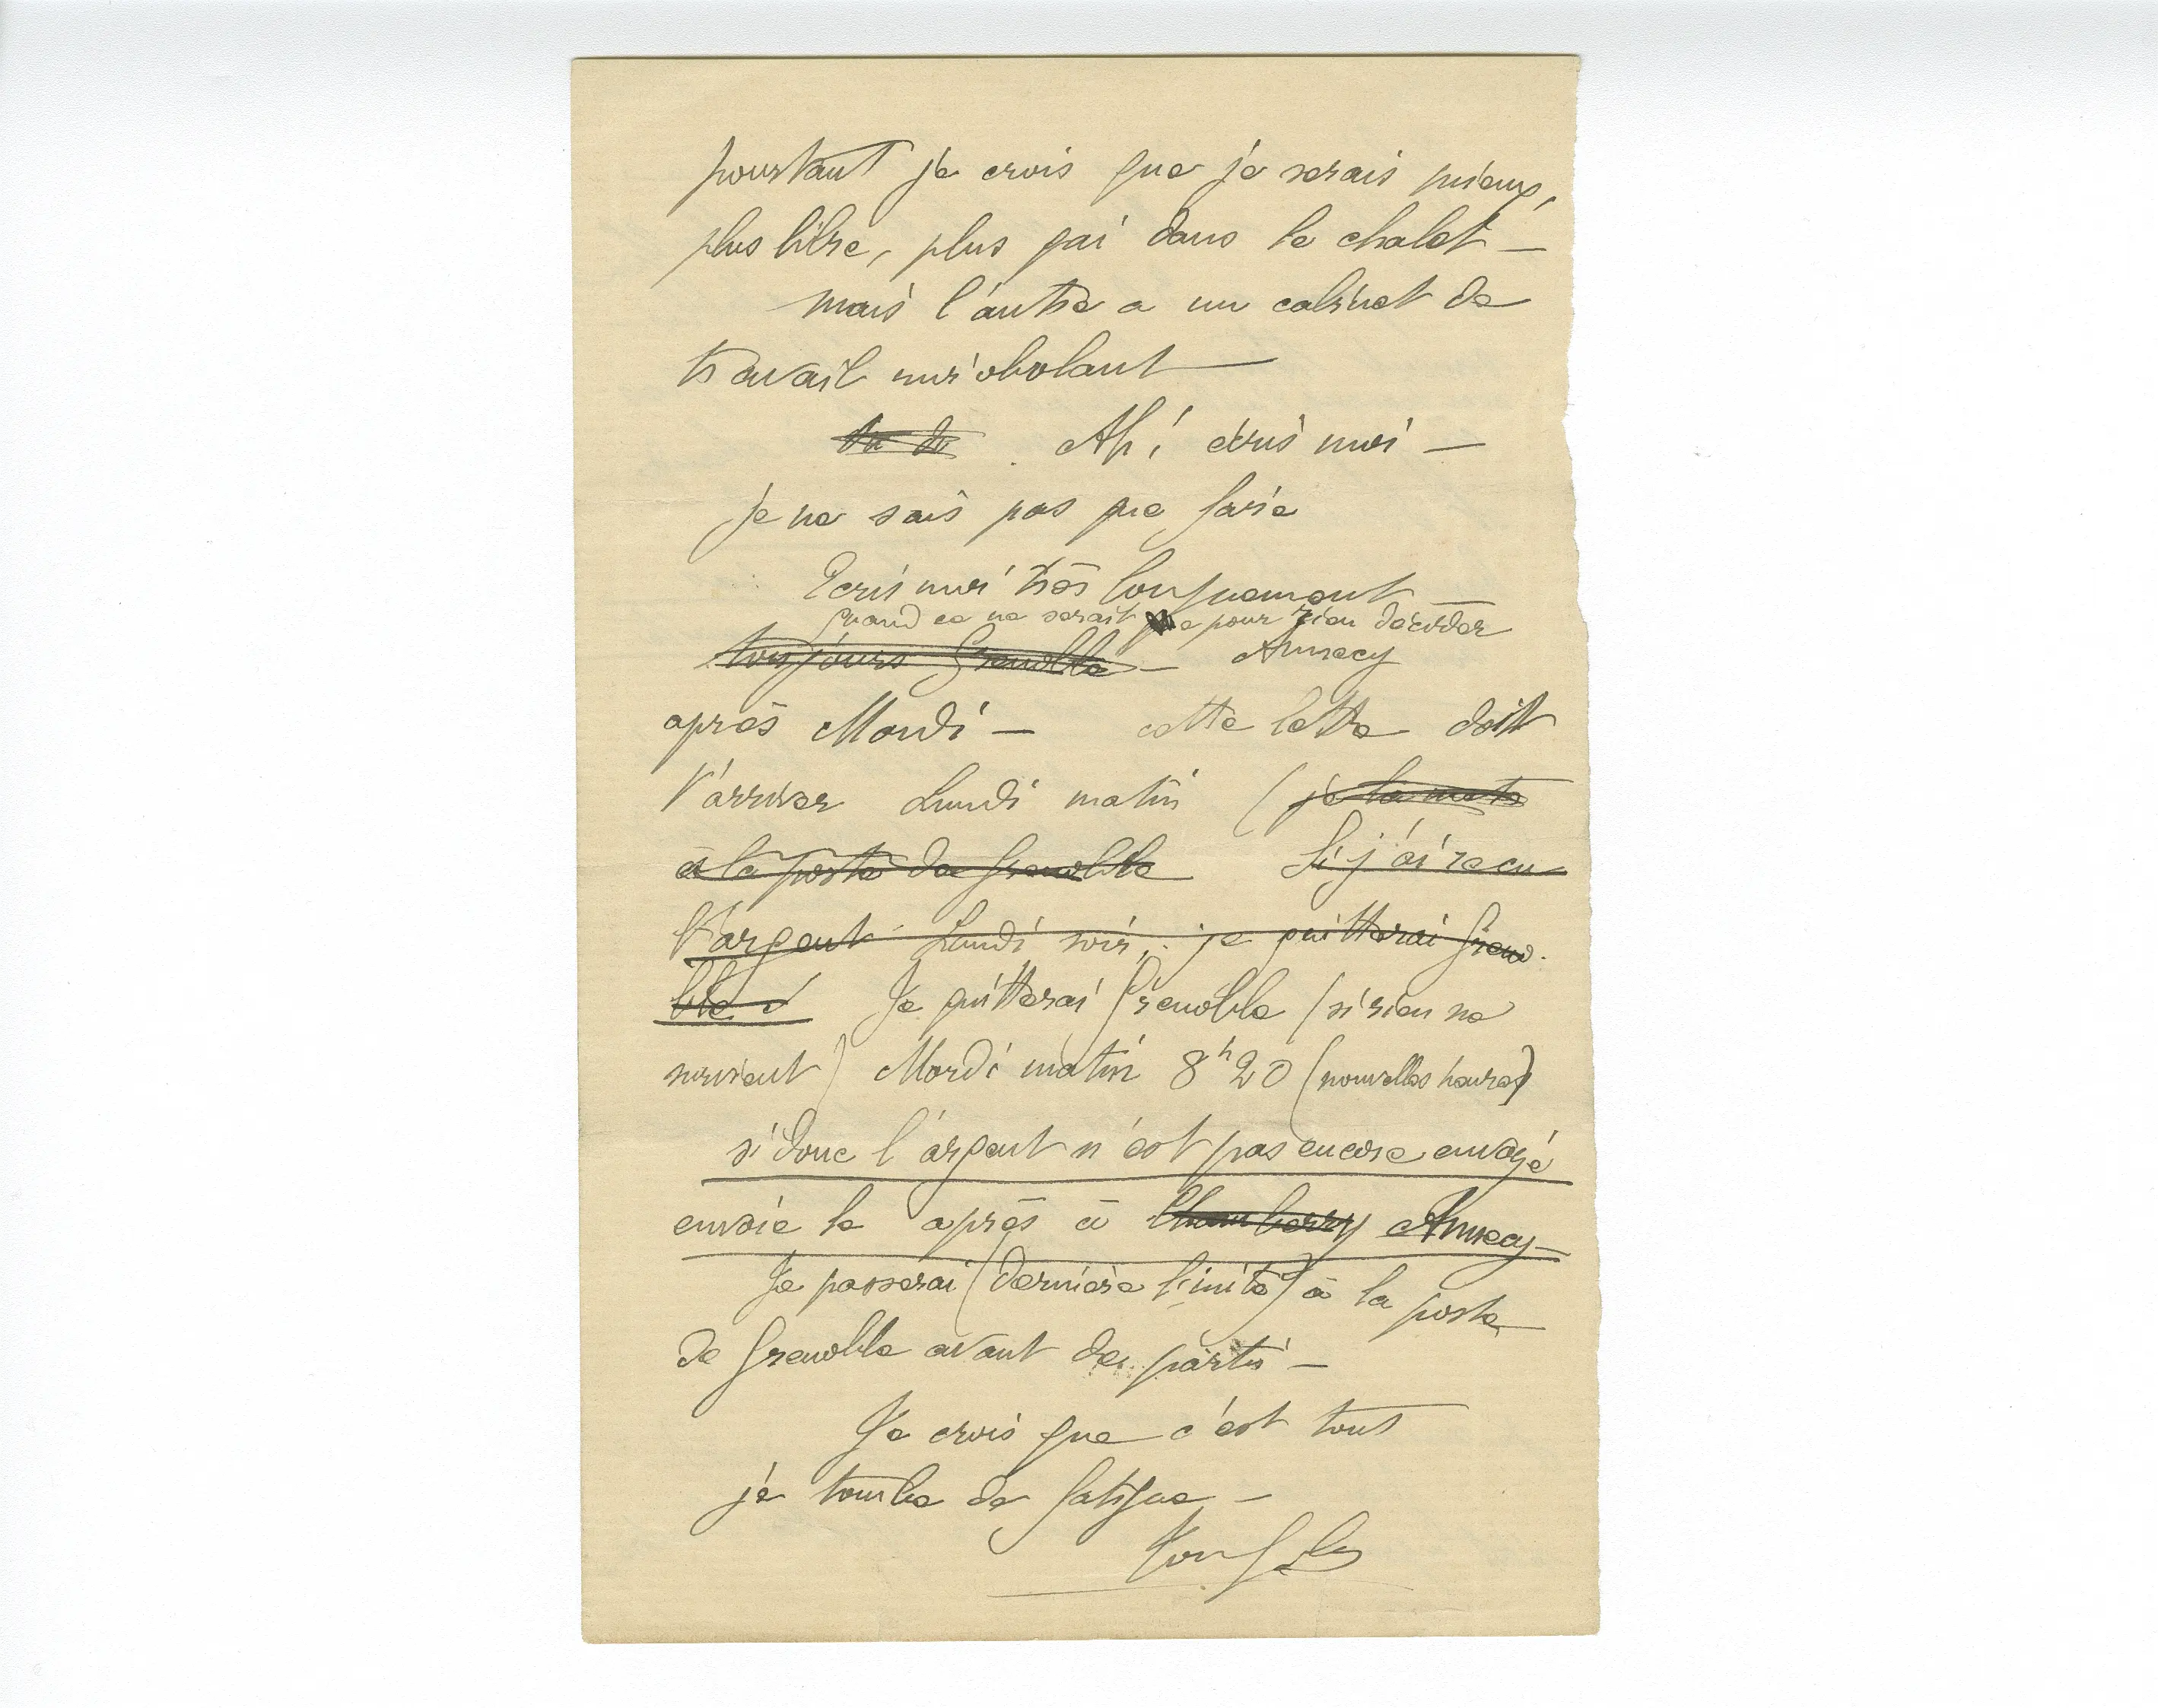 pourtant je crois que je serais mieux,
plus libre, plus gai dans le chalet —
mais l'autre a un cabinet de
travail mirobolant —
Ah ! écris moi —
je ne sais pas que faire
Ecris moi très longuement —
quand ce ne serait que pour rien décider
toujours Grenoble — Annecy
après Mardi — cette lettre doit
t'arriver Lundi matin (je la mets
à la poste de Grenoble Si j'ai reçu
l'argent Lundi soir, je quitterai Greno-
ble Je quitterai Grenoble (si rien ne
survient) Mardi matin 8h20 (nouvelles heures)
si donc l'argent n'est pas encore envoyé
envoie le après à Chambery Annecy —
Je passerai (dernière limite) à la poste
de Grenoble avant de partir —
Je crois que c'est tout
je tombe de fatigue —
Ton fils